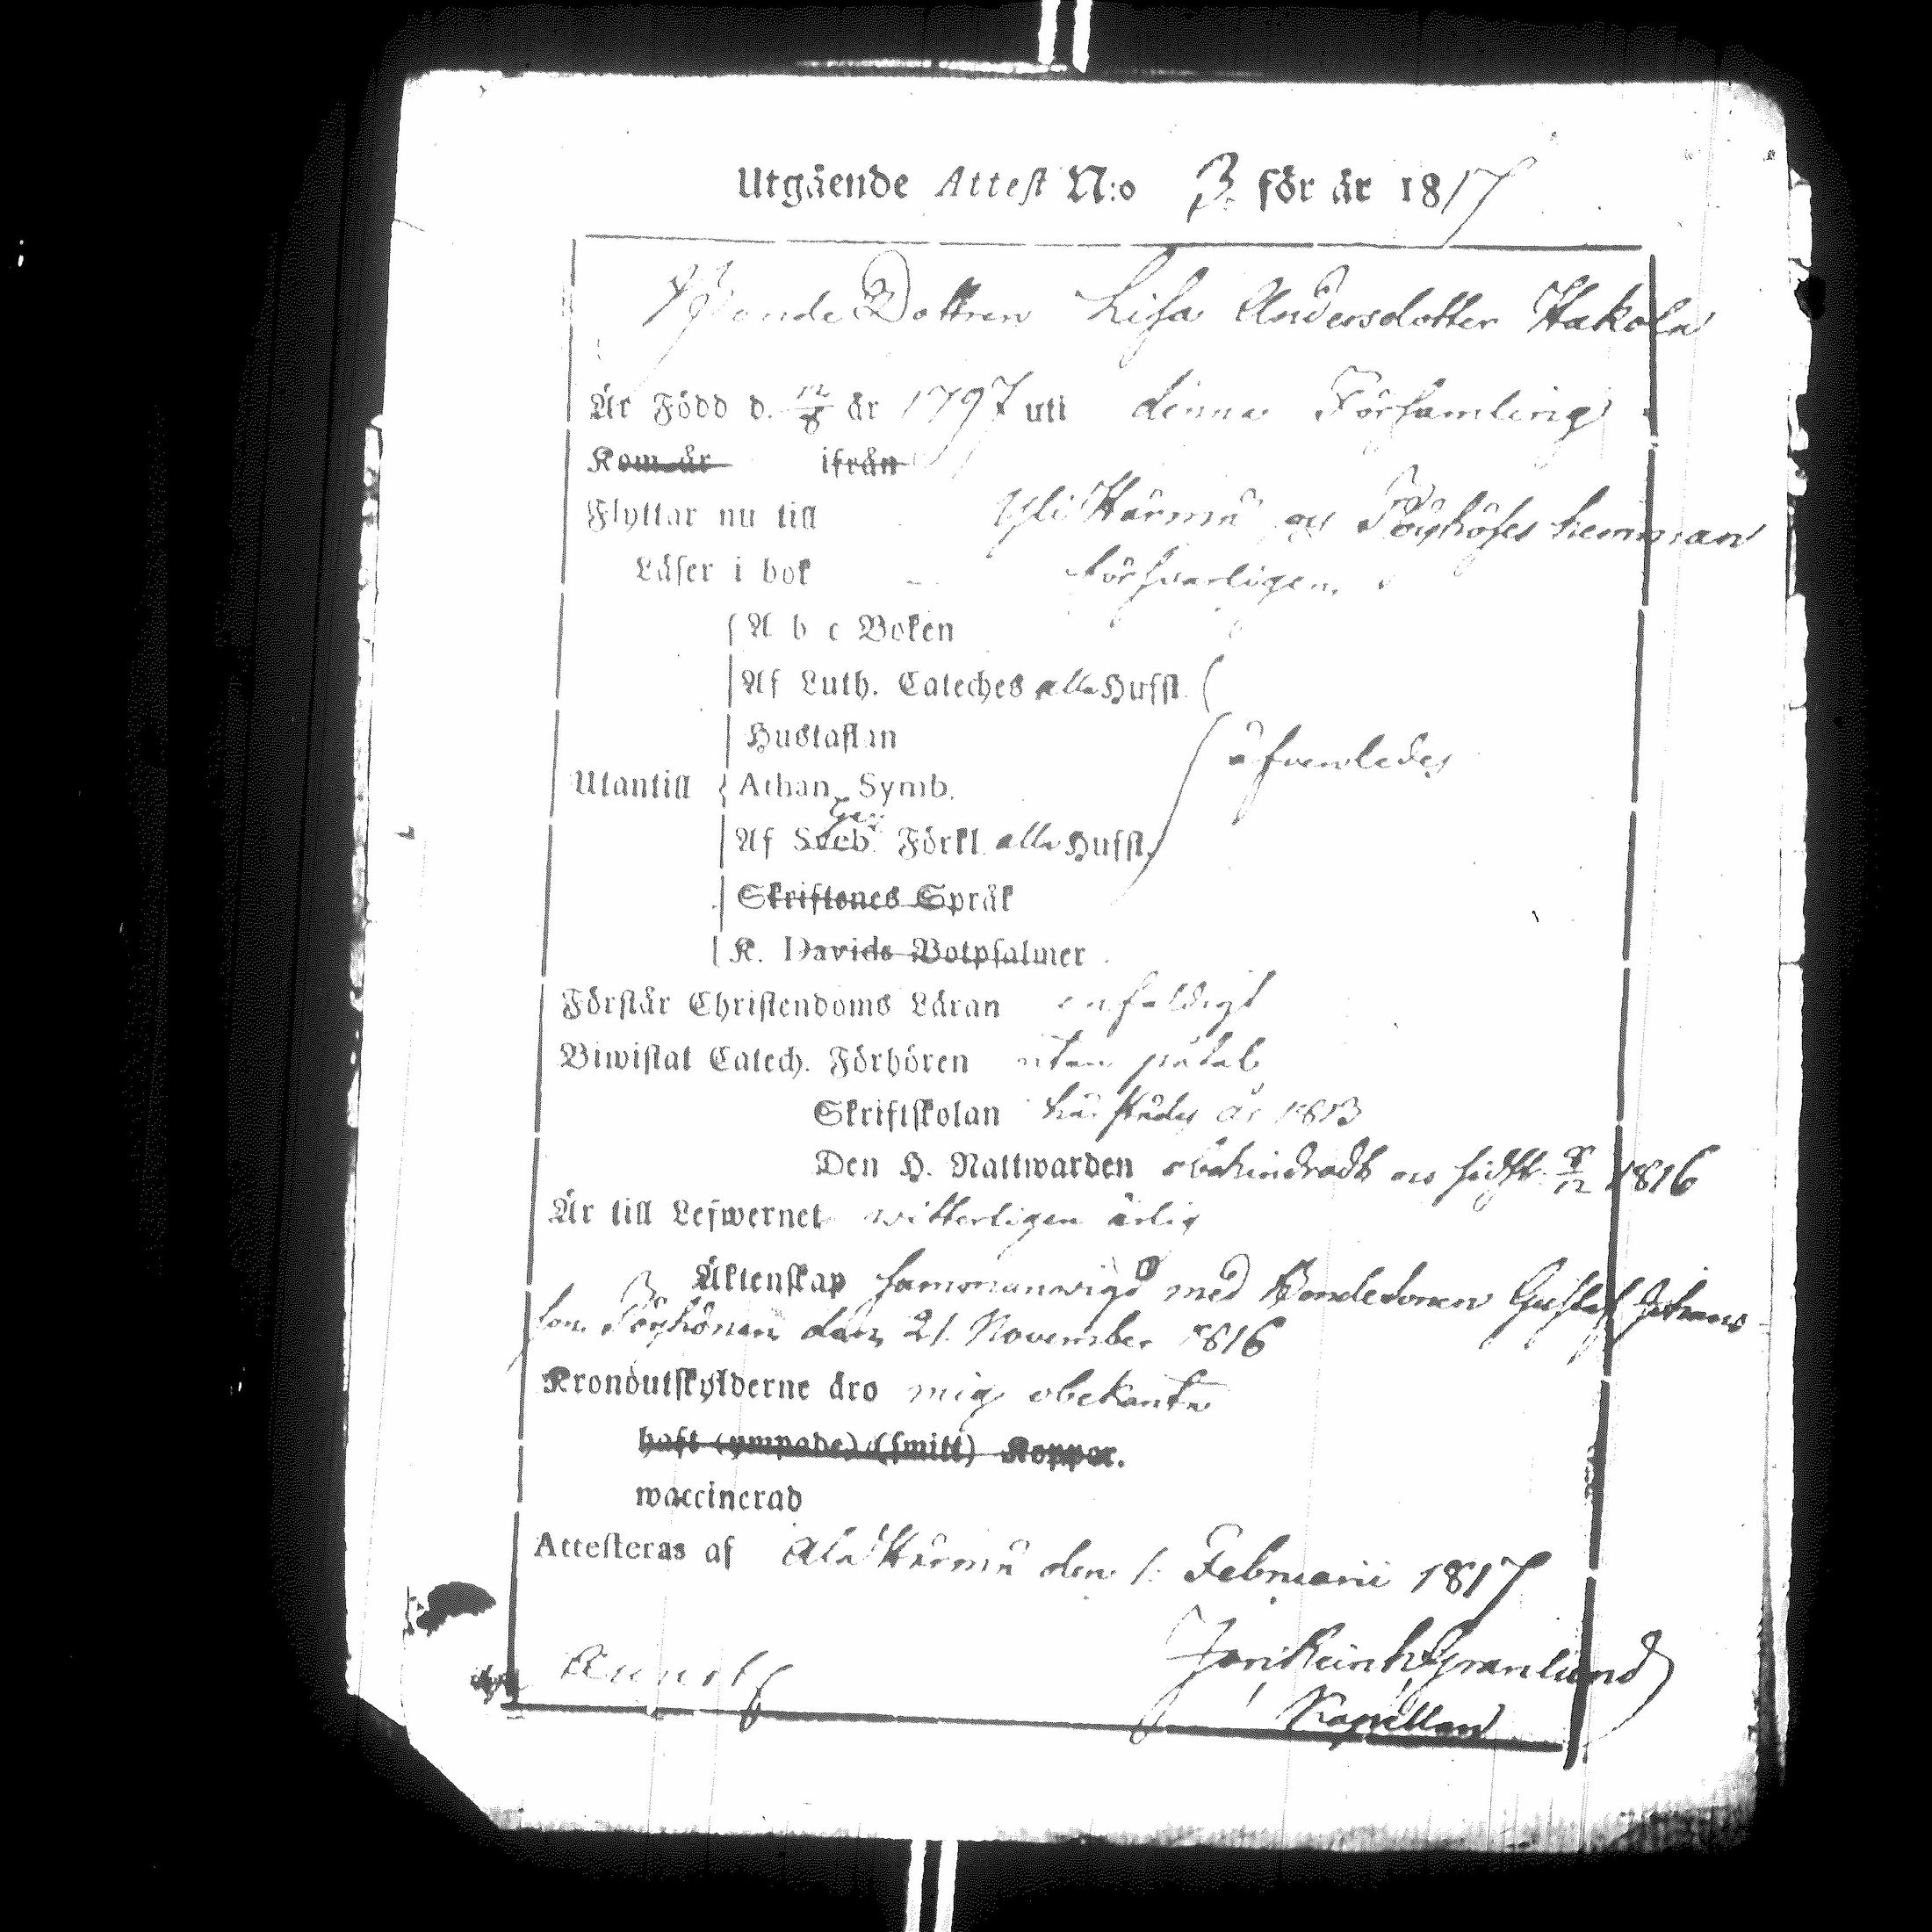 Utgående Attest N:o 3. för år 1817
Bonde Dottren Lisa Andersdotter Hakola
Är Född d. 12/8 år 1797 uti denna Församling
Kom år ifrån
Flyttar nu till Yli Härmä och Pöyhöses hemman
Läser i bok försvarligen.
A b c Boken
Af Luth. Cateches alla Hufst.
Hustaflan
äfvenledes
Utantill Athan. Symb.
Af Sveb. Förkl. alla Hufst.
Skriftenes Språk
K. Davids Botpsalmer
Förstår Christendoms Läran enfaldigt
Biwistat Catech. Förhören utan påtal
Skriftskolan härstädes år 1813
Den H. Nattwarden obehindradt sidst 1816
Är till Lefwernet witterligen ärlig
Äktenskap sammanwigd med Bondesonen Gustaf Johans
son Pöyhönen den 21. November 1816
Kronoutskylderne äro mig obekante
haft (ympade) (smitt) Koppor.
waccinerad
Attesteras af Ala Härmä den 1. Februarii 1817
Granlund
Kapellan